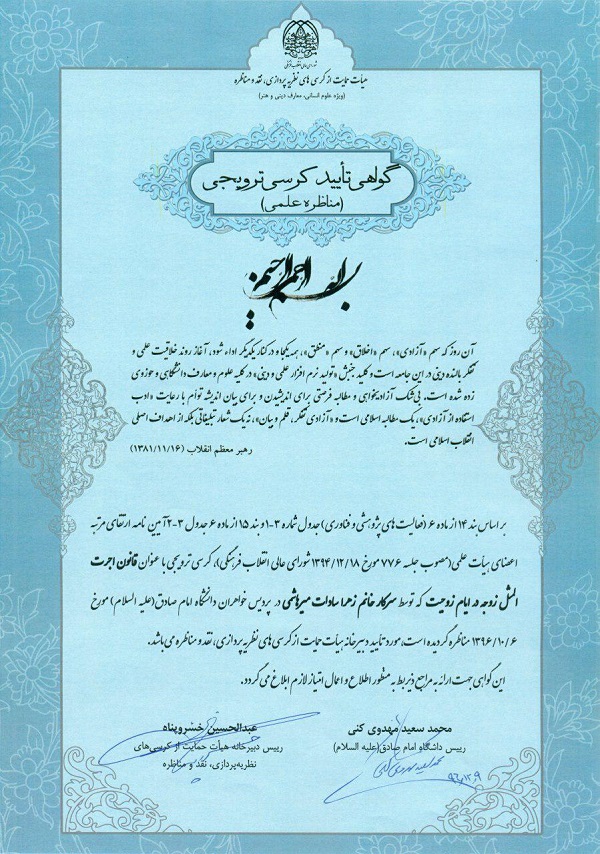 شورای عالی انقلاب فرهنگی
هیأت حمایت از کرسی های نظریه پردازی، نقد و مناظره
(ویژه علوم انسانی، معارف دینی و هنر)
گواهی تأیید کرسی ترویجی
(مناظره علمی)
بسم الله الرحمن الرحیم
آن روز که سهم «آزادی»، سهم «اخلاق» و سهم «منطق»، همه یکجا و در کنار یکدیگر اداء شود، آغاز روند خلاقیت علمی و
تفکر بالنده دینی در این جامعه است و کلید جنبش «تولید نرم افزار علمی و دینی» در کلیه علوم و معارف دانشگاهی و حوزوی
زده شده است. بی شک آزادیخواهی و مطالبه فرصتی برای اندیشیدن و برای بیان اندیشه توأم با رعایت «ادب
استفاده از آزادی»، یک مطالبه اسلامی است و «آزادی تفکر، قلم و بیان»، نه یک شعار تبلیغاتی بلکه از اهداف اصلی
انقلاب اسلامی است.
رهبر معظم انقلاب (۱۳۸۱/۱۱/۱۶)
بر اساس بند ۱۴ از ماده ۶ (فعالیت های پژوهشی و فناوری) جدول شماره ۳-۱ و بند ۱۵ از ماده ۶ جدول ۳-۲ آیین نامه ارتقای مرتبه
اعضای هیأت علمی (مصوب جلسه ۷۷۶ مورخ ۱۳۹۴/۱۲/۱۸ شورای عالی انقلاب فرهنگی)، کرسی ترویجی با عنوان قانون اجرت
المثل زوجه در ایام زوجیت که توسط سرکار خانم زهرا سادات میرهاشمی در پردیس خواهران دانشگاه امام صادق (علیه السلام) مورخ
۱۳۹۶/۱۰/۶ مناظره گردیده است، مورد تأیید دبیرخانه هیأت حمایت از کرسی های نظریه پردازی، نقد و مناظره می باشد.
این گواهی جهت ارائه به مراجع ذیربط به منظور اطلاع و اعمال امتیاز لازم ابلاغ می گردد.
محمد سعید مهدوی کنی
رییس دانشگاه امام صادق(علیه السلام)
عبدالحسین خسروپناه
رییس دبیرخانه هیأت حمایت از کرسی‌های
نظریه‌پردازی، نقد و مناظره
محمد سعید مهدوی کنی
۹۶،۱۲،۹